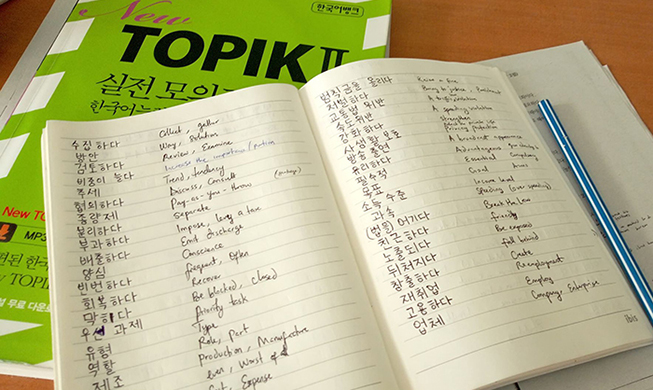 한국어뱅크
New
TOPIK II
실전 모의
한국어능
New TO
MP3
편된 한국
TOPIK
무료 다운로
수집하다 Collect, gather
방안 Way, Solution
검토하다 Review, Examine
비중이 늘다 Increase the importance / portion
추세 Trend, tendency
협의하다 Discuss, Consult
종량제 Pay-as-you-throw (garbage)
분리하다 Separate
부과하다 Impose, levy a tax
배출하다 Emit discharge
양심 Conscience
빈번하다 frequent, Often
회복하다 Recover
막히다 Be blocked, closed
우선 과제 Priority task
유형 Type
역할 Role, Part
제조 Production, Manufacture
Worst of
Expense
범칙금을 물리다 a fine
처벌하다 Bring to justice
교통법 위반 A traffic violation
속도위반 A speeding violation
강화하다 Strengthen
사생활 보호 Privacy protection
방송 출연 A broadcast appearance
유리하다 Advantageous
필수적 Essential
목표 Goal
소득 수준 Income level
과속 Speeding (over speeding)
(법을) 어기다 Break the law
친근하다 friendly
노출되다 Be exposed
뒤처지다 fall behind
창출하다 Create
재취업 Re employment
고용하다 Employ
업체 Company, Enterprise
ibis